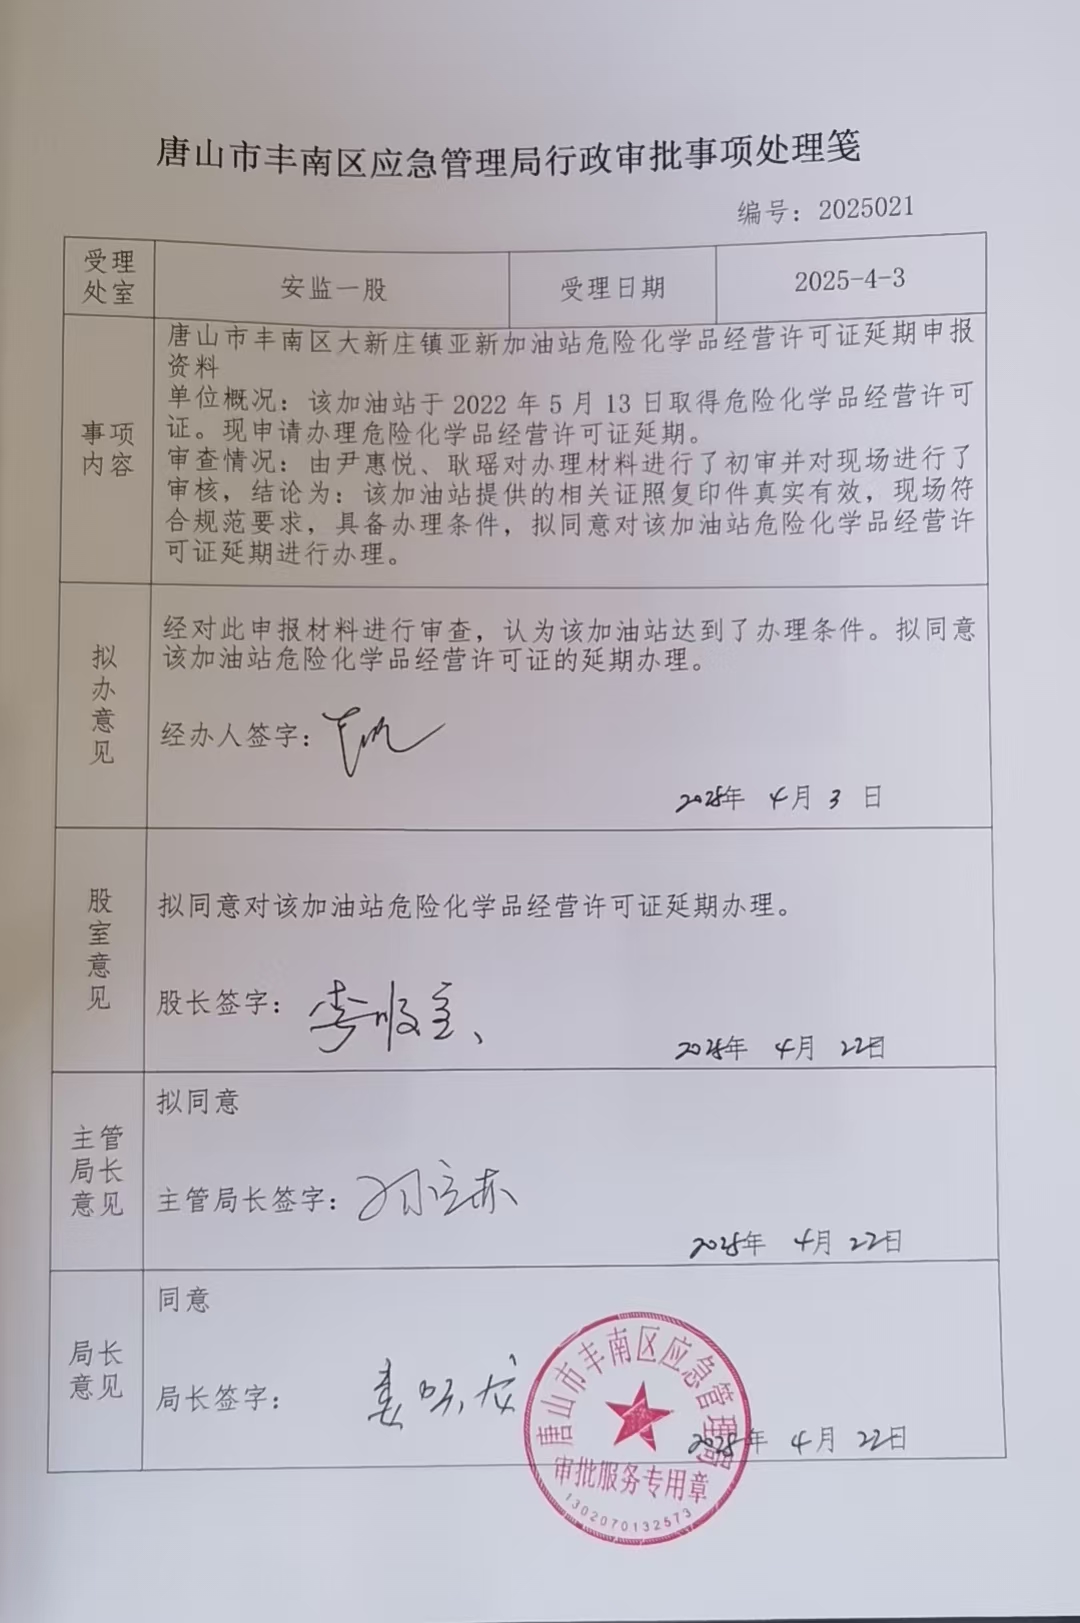 唐山市丰南区应急管理局行政审批事项处理笺
编号：2025021
受理
处室
安监一股
受理日期
2025-4-3
事项
内容
唐山市丰南区大新庄镇亚新加油站危险化学品经营许可证延期申报
资料
单位概况：该加油站于 2022 年 5 月 13 日取得危险化学品经营许可
证。现申请办理危险化学品经营许可证延期。
审查情况：由尹惠悦、耿瑶对办理材料进行了初审并对现场进行了
审核，结论为：该加油站提供的相关证照复印件真实有效，现场符
合规范要求，具备办理条件，拟同意对该加油站危险化学品经营许
可证延期进行办理。
拟
办
意
见
经对此申报材料进行审查，认为该加油站达到了办理条件。拟同意
该加油站危险化学品经营许可证的延期办理。
经办人签字：
2025年 4月 3 日
股
室
意
见
拟同意对该加油站危险化学品经营许可证延期办理。
股长签字：
2025年 4月 22日
主管
局长
意见
拟同意
主管局长签字：
2025年 4月 22日
局长
意见
同意
局长签字：
2025年 4月 22日
唐山市丰南区应急管理局
审批服务专用章
1302070132573